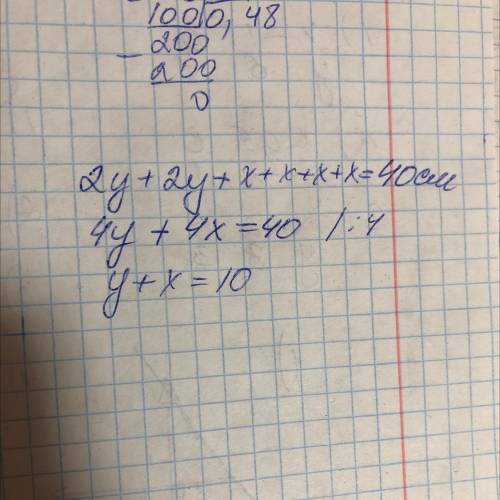 1000,48
200
200
0
2y + 2y + x + x + x + x = 40 см
4y + 4x = 40 /:4
y + x = 10